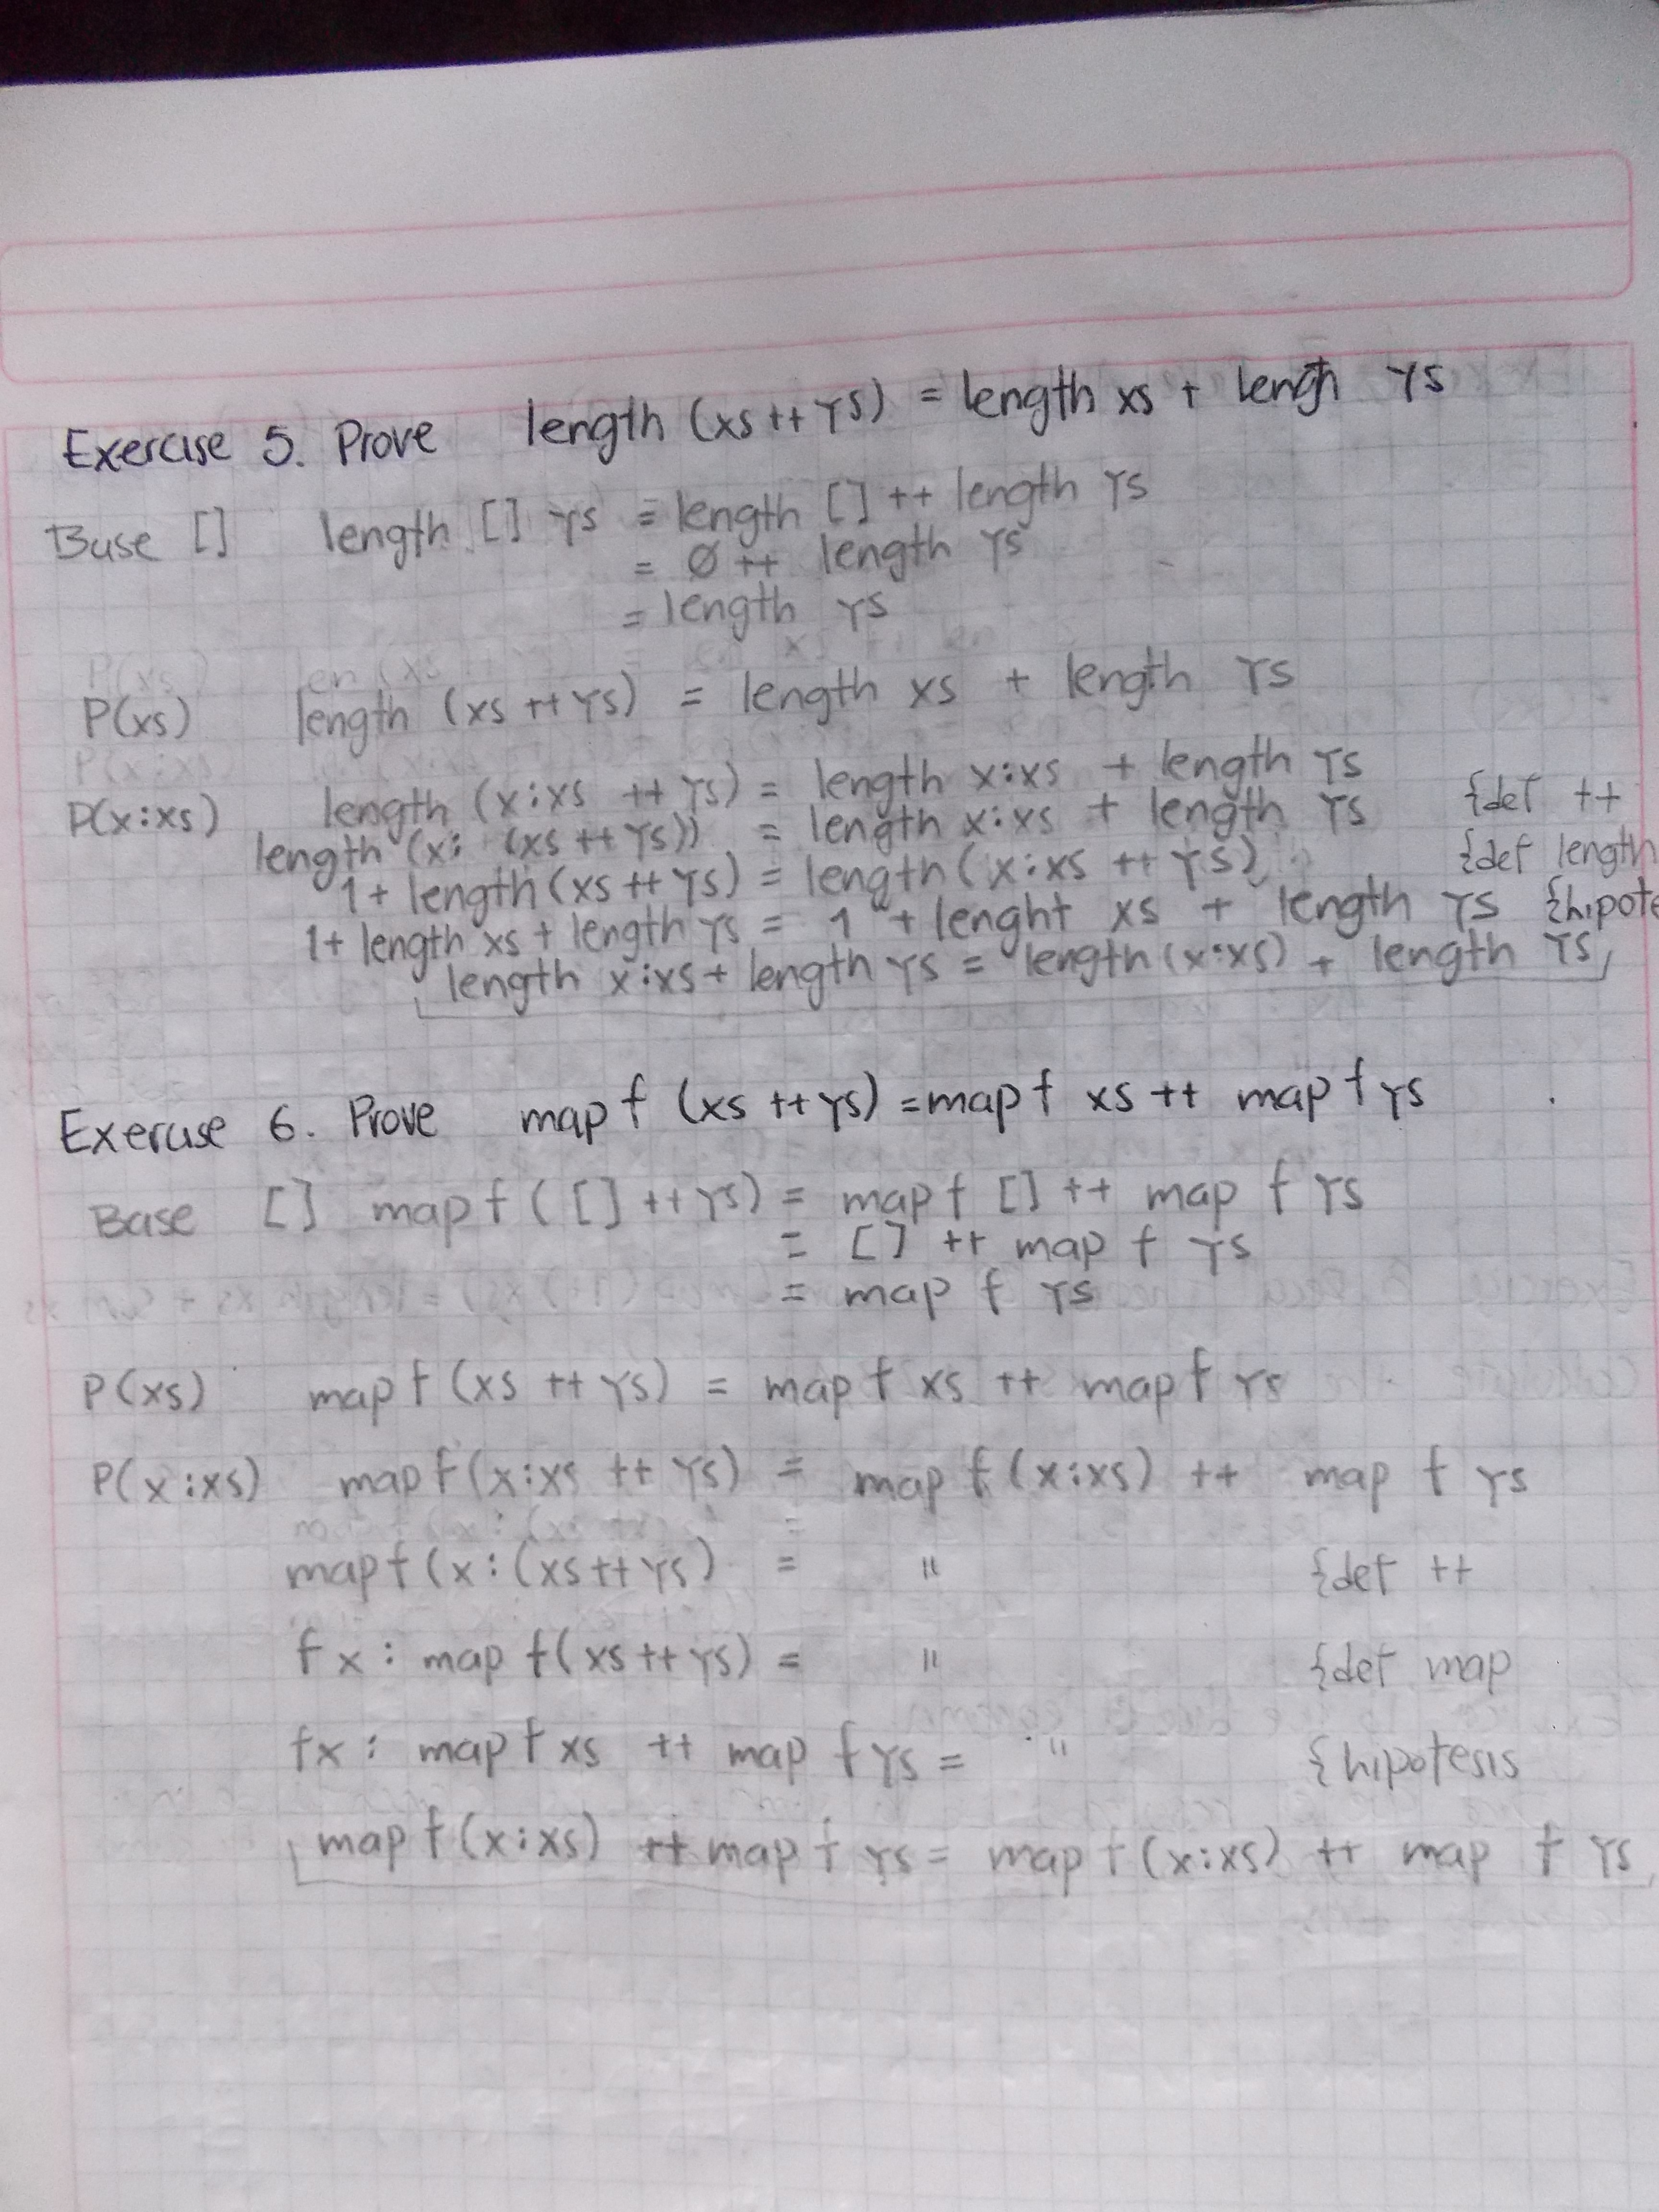 Exercise 5. Prove length (xs ++ ys) = length xs + lengh ys
Base [] length [] ys = length [] ++ length ys
= Ø ++ length ys
= length ys
P(xs) length (xs ++ ys) = length xs + length ys
P(x:xs) length (x:xs ++ ys) = length x:xs + length ys
length (x: (xs ++ ys)) = length x:xs + length ys {def ++
1 + length (xs ++ ys) = length (x:xs ++ ys) {def length
1 + length xs + length ys = 1 + lenght xs + length ys {hipote
length x:xs + length ys = length (x:xs) + length ys
Exercise 6. Prove map f (xs ++ ys) = map f xs ++ map f ys
Base [] map f ([] ++ ys) = map f [] ++ map f ys
= [] ++ map f ys
= map f ys
P(xs) map f (xs ++ ys) = map f xs ++ map f ys
P(x:xs) map f (x:xs ++ ys) = map f (x:xs) ++ map f ys
map f (x:(xs ++ ys) = " {def ++
f x : map f (xs ++ ys) = " {def map
fx : map f xs ++ map f ys = " {hipotesis
map f (x:xs) ++ map f ys = map f (x:xs) ++ map f ys